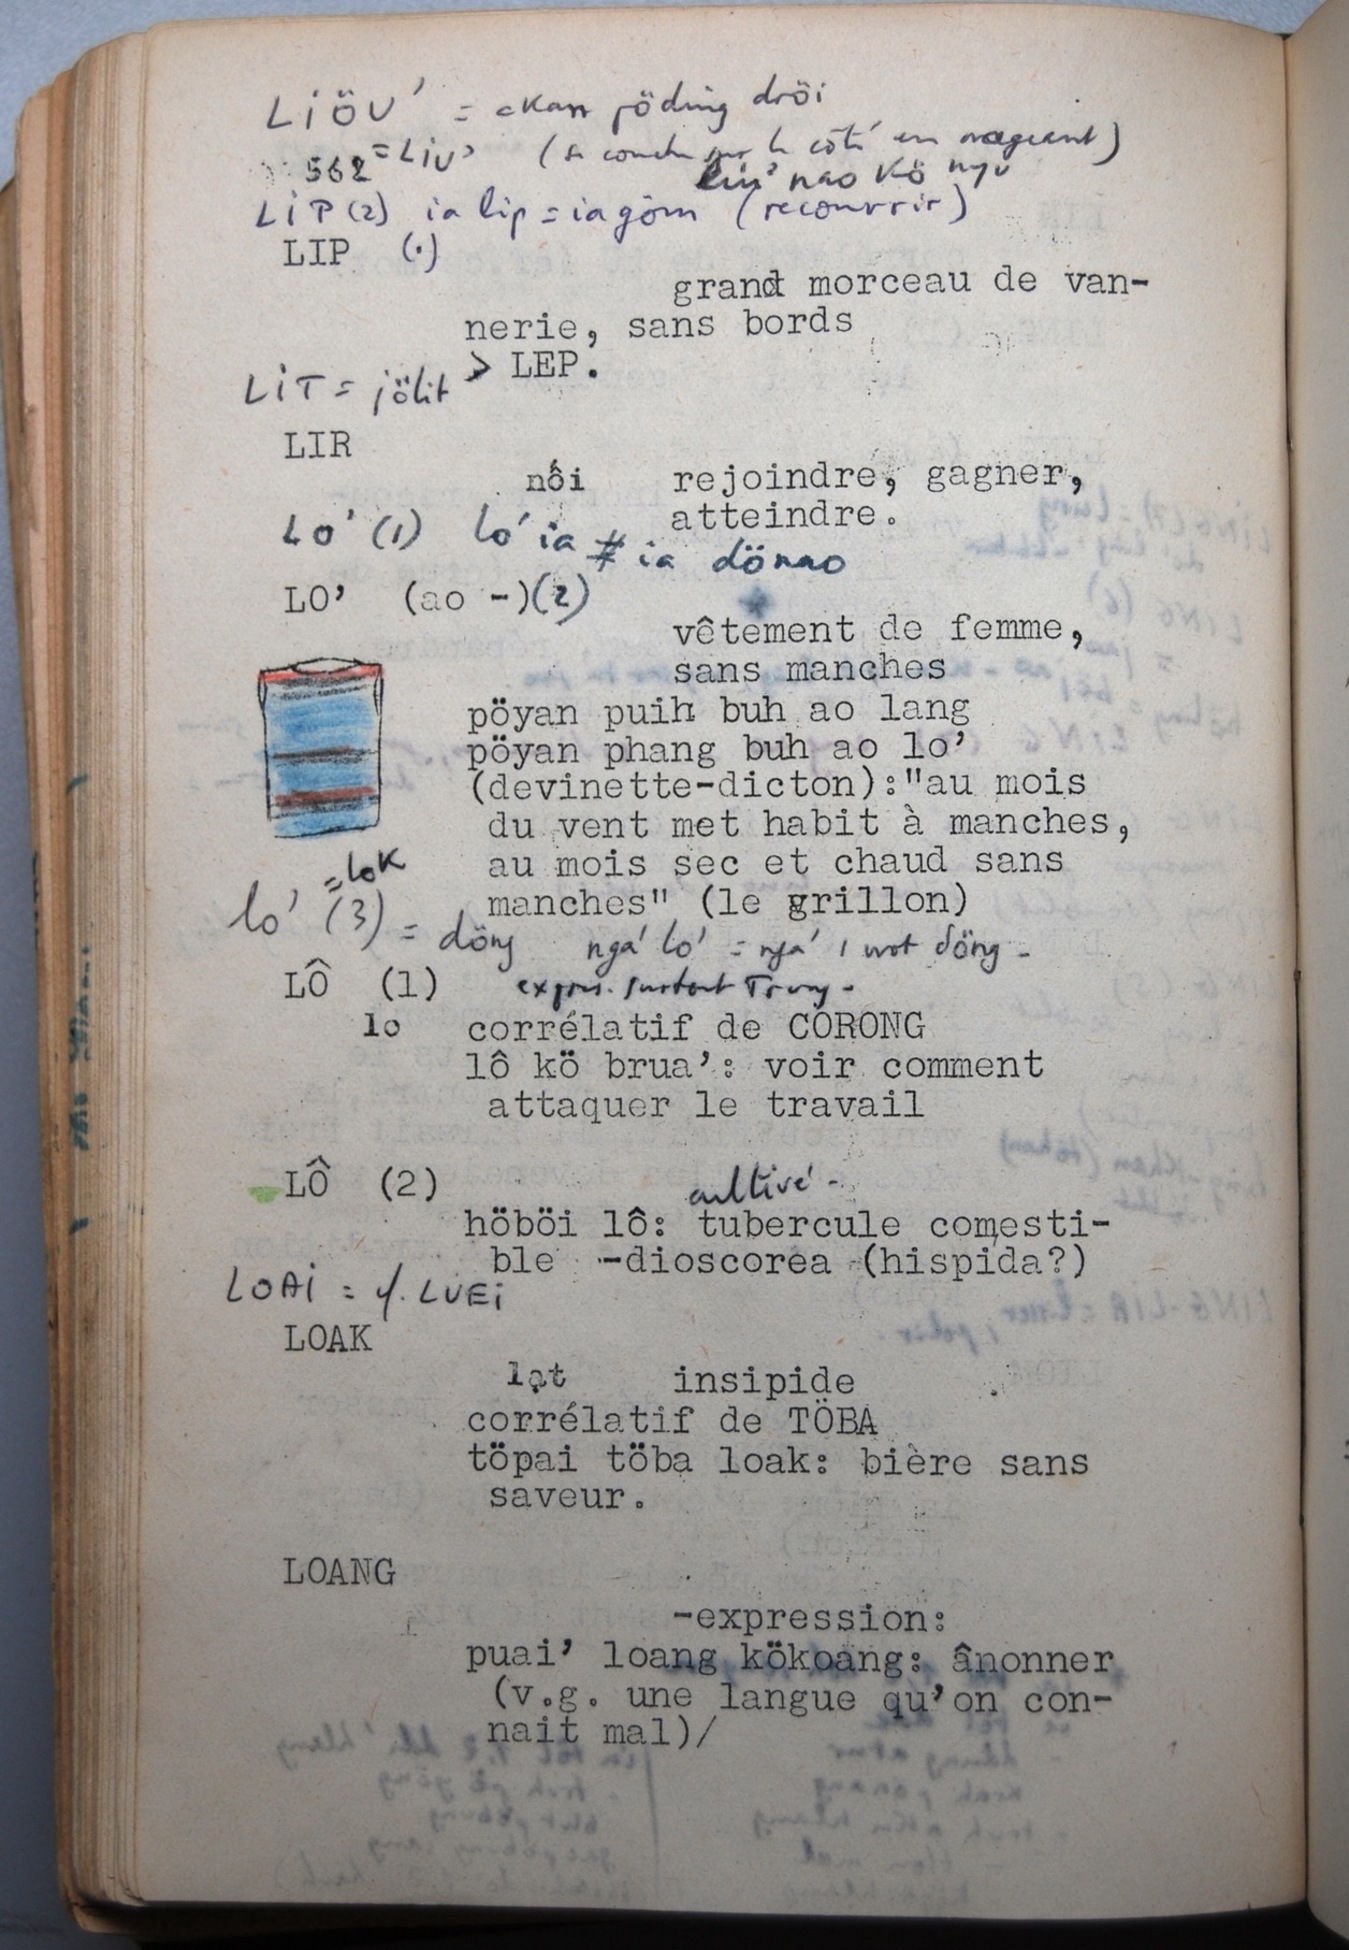 LIÖU' = akan pöding dröi
562 = LIU' (se couche sur le côté en nageant)
liu' nao kö nyu
LIP (2) ia lip = ia göm (recouvrir)
LIP (1)
grand morceau de van-
nerie, sans bords
> LEP.
LIT = jölit
LIR
nối rejoindre, gagner,
atteindre.
LO' (1) lo' ia ≠ ia dönao
LO' (ao -)(2)
vêtement de femme,
sans manches
pöyan puih buh ao lang
pöyan phang buh ao lo'
(devinette-dicton):"au mois
du vent met habit à manches,
au mois sec et chaud sans
manches" (le grillon)
lo' (3) = lok = döng ngá lo' = ngá wot döng -
LÔ (1) expres. surtout Trung -
lo corrélatif de CÖRONG
lô kö brua': voir comment
attaquer le travail
LÔ (2) cultivé -
höböi lô: tubercule comesti-
ble -dioscorea (hispida?)
LOAI = LUEI
LOAK
lạt insipide
corrélatif de TÖBA
töpai töba loak: bière sans
saveur.
LOANG
-expression:
puai' loang kökoang: ânonner
(v.g. une langue qu'on con-
nait mal)/